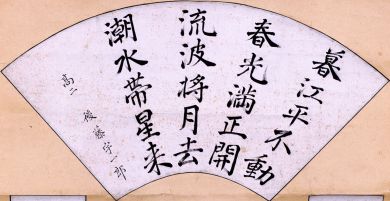 暮江平不動
春光満正開
流波将月去
潮水帯星来
高二 後藤宇一郎